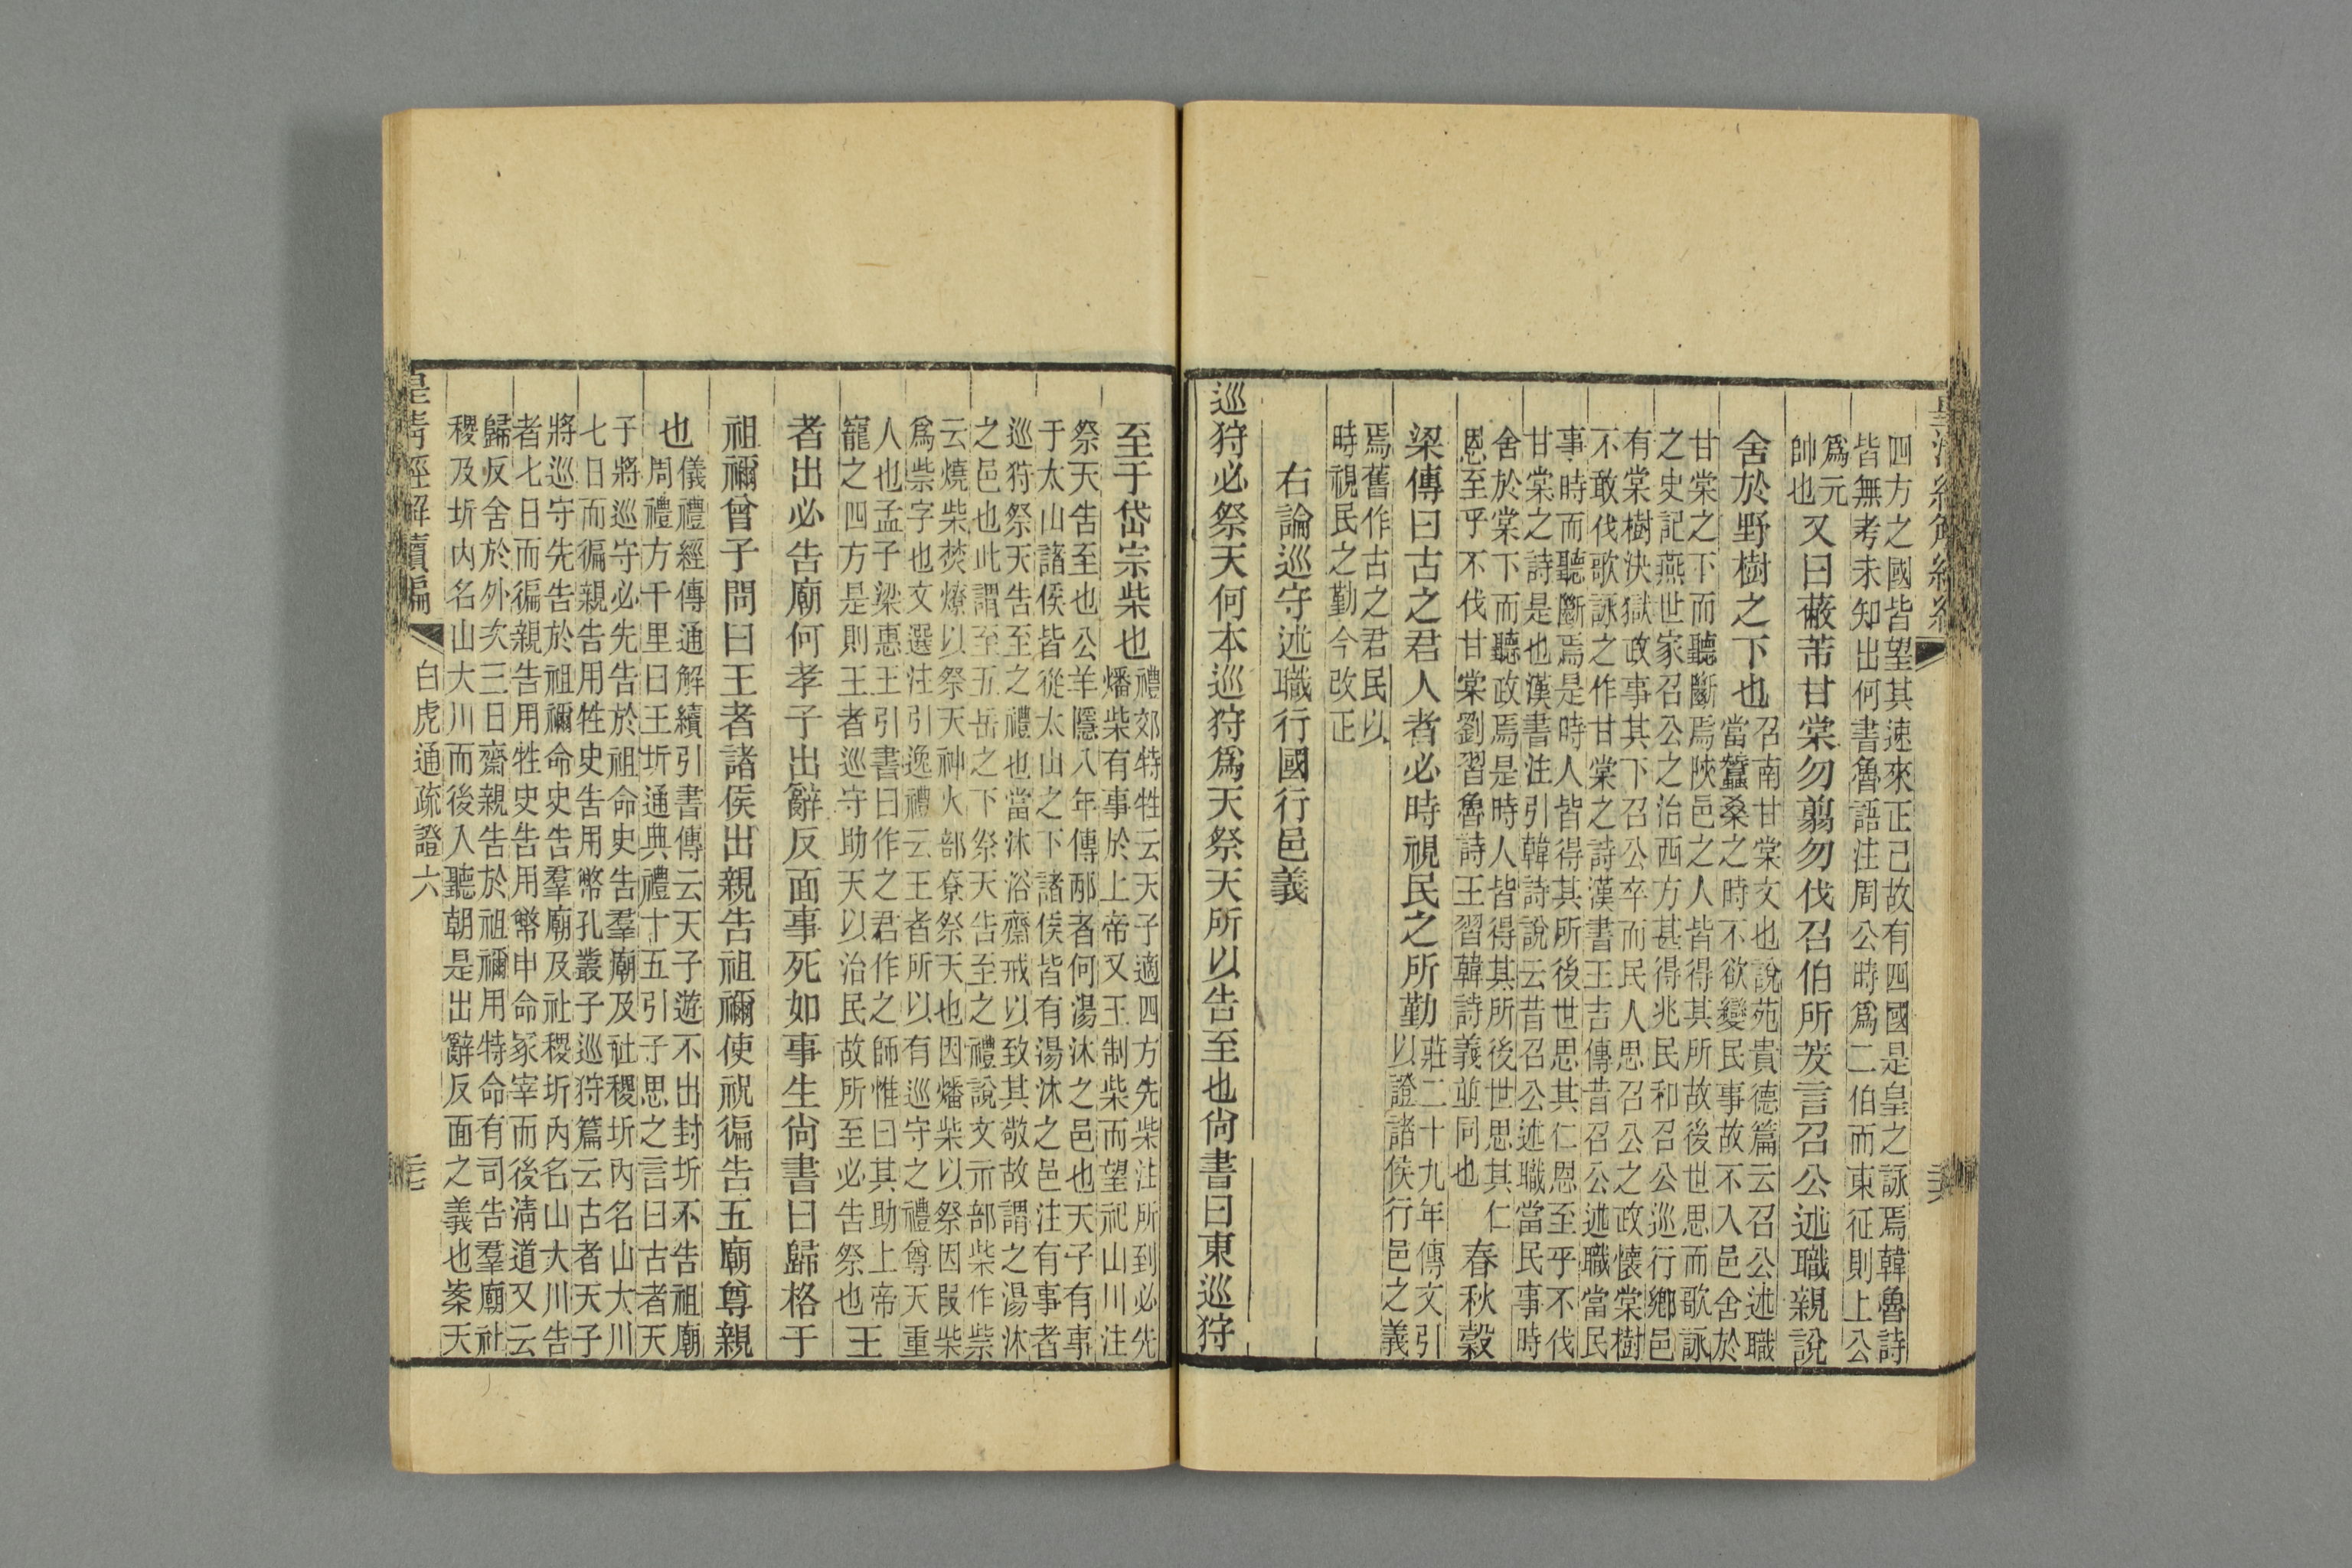 四方之國皆望其速來正己故有四國是皇之詠焉韓魯詩
皆無考未知出何書魯語注周公時爲二伯而東征則上公
爲元
帥也
又曰蔽芾甘棠勿翦勿伐召伯所茇言召公述職親說
舍於野樹之下也
召南甘棠文也說苑貴德篇云召公述職
當蠶桑之時不欲變民事故不入邑舍於
甘棠之下而聽斷焉陜邑之人皆得其所故後世思而歌詠
之史記燕世家召公之治西方甚得兆民和召公巡行鄉邑
有棠樹決獄政事其下召公卒而民人思召公之政懷棠樹
不敢伐歌詠之作甘棠之詩漢書王吉傳昔召公述職當民
事時而聽斷焉是時人皆得其所後世思其仁恩至乎不伐
甘棠之詩是也漢書注引韓詩說云昔召公述職當民事時
舍於棠下而聽政焉是時人皆得其所後世思其仁
恩至乎不伐甘棠劉習魯詩王習韓詩義並同也
春秋穀
梁傳曰古之君人者必時視民之所勤
莊二十九年傳文引
以證諸侯行邑之義
焉舊作古之君民以
時視民之勤今改正
右論巡守述職行國行邑義
巡狩必祭天何本巡狩爲天祭天所以告至也尙書曰東巡狩
至于岱宗柴也
禮郊特牲云天子適四方先柴注所到必先
燔柴有事於上帝又王制柴而望祀山川注
祭天告至也公羊隱八年傳邴者何湯沐之邑也天子有事
于太山諸侯皆從太山之下諸侯皆有湯沐之邑注有事者
巡狩祭天告至之禮也當沐浴齋戒以致其敬故謂之湯沐
之邑也此謂至五岳之下祭天告至之禮說文示部祡作祡
云燒柴焚燎以祭天神火部尞祭天也因燔柴以祭因叚柴
爲祡字也文選注引逸禮云王者所以有巡守之禮尊天重
人也孟子梁惠王引書曰作之君作之師惟曰其助上帝
寵之四方是則王者巡守助天以治民故所至必告祭也
王
者出必告廟何孝子出辭反面事死如事生尙書曰歸格于
祖禰曾子問曰王者諸侯出親告祖禰使祝徧告五廟尊親
也
儀禮經傳通解續引書傳云天子遊不出封圻不告祖廟
周禮方千里曰王圻通典禮十五引子思之言曰古者天
子將巡守必先告於祖命史告羣廟及社稷圻內名山大川
七日而徧親告用牲史告用幣孔叢子巡狩篇云古者天子
將巡守先告於祖禰命史告羣廟及社稷圻內名山大川告
者七日而徧親告用牲史告用幣申命冢宰而後淸道又云
歸反舍於外次三日齋親告於祖禰用特命有司告羣廟社
稷及圻內名山大川而後入聽朝是出辭反面之義也案天
皇清經解續編
白虎通疏證六